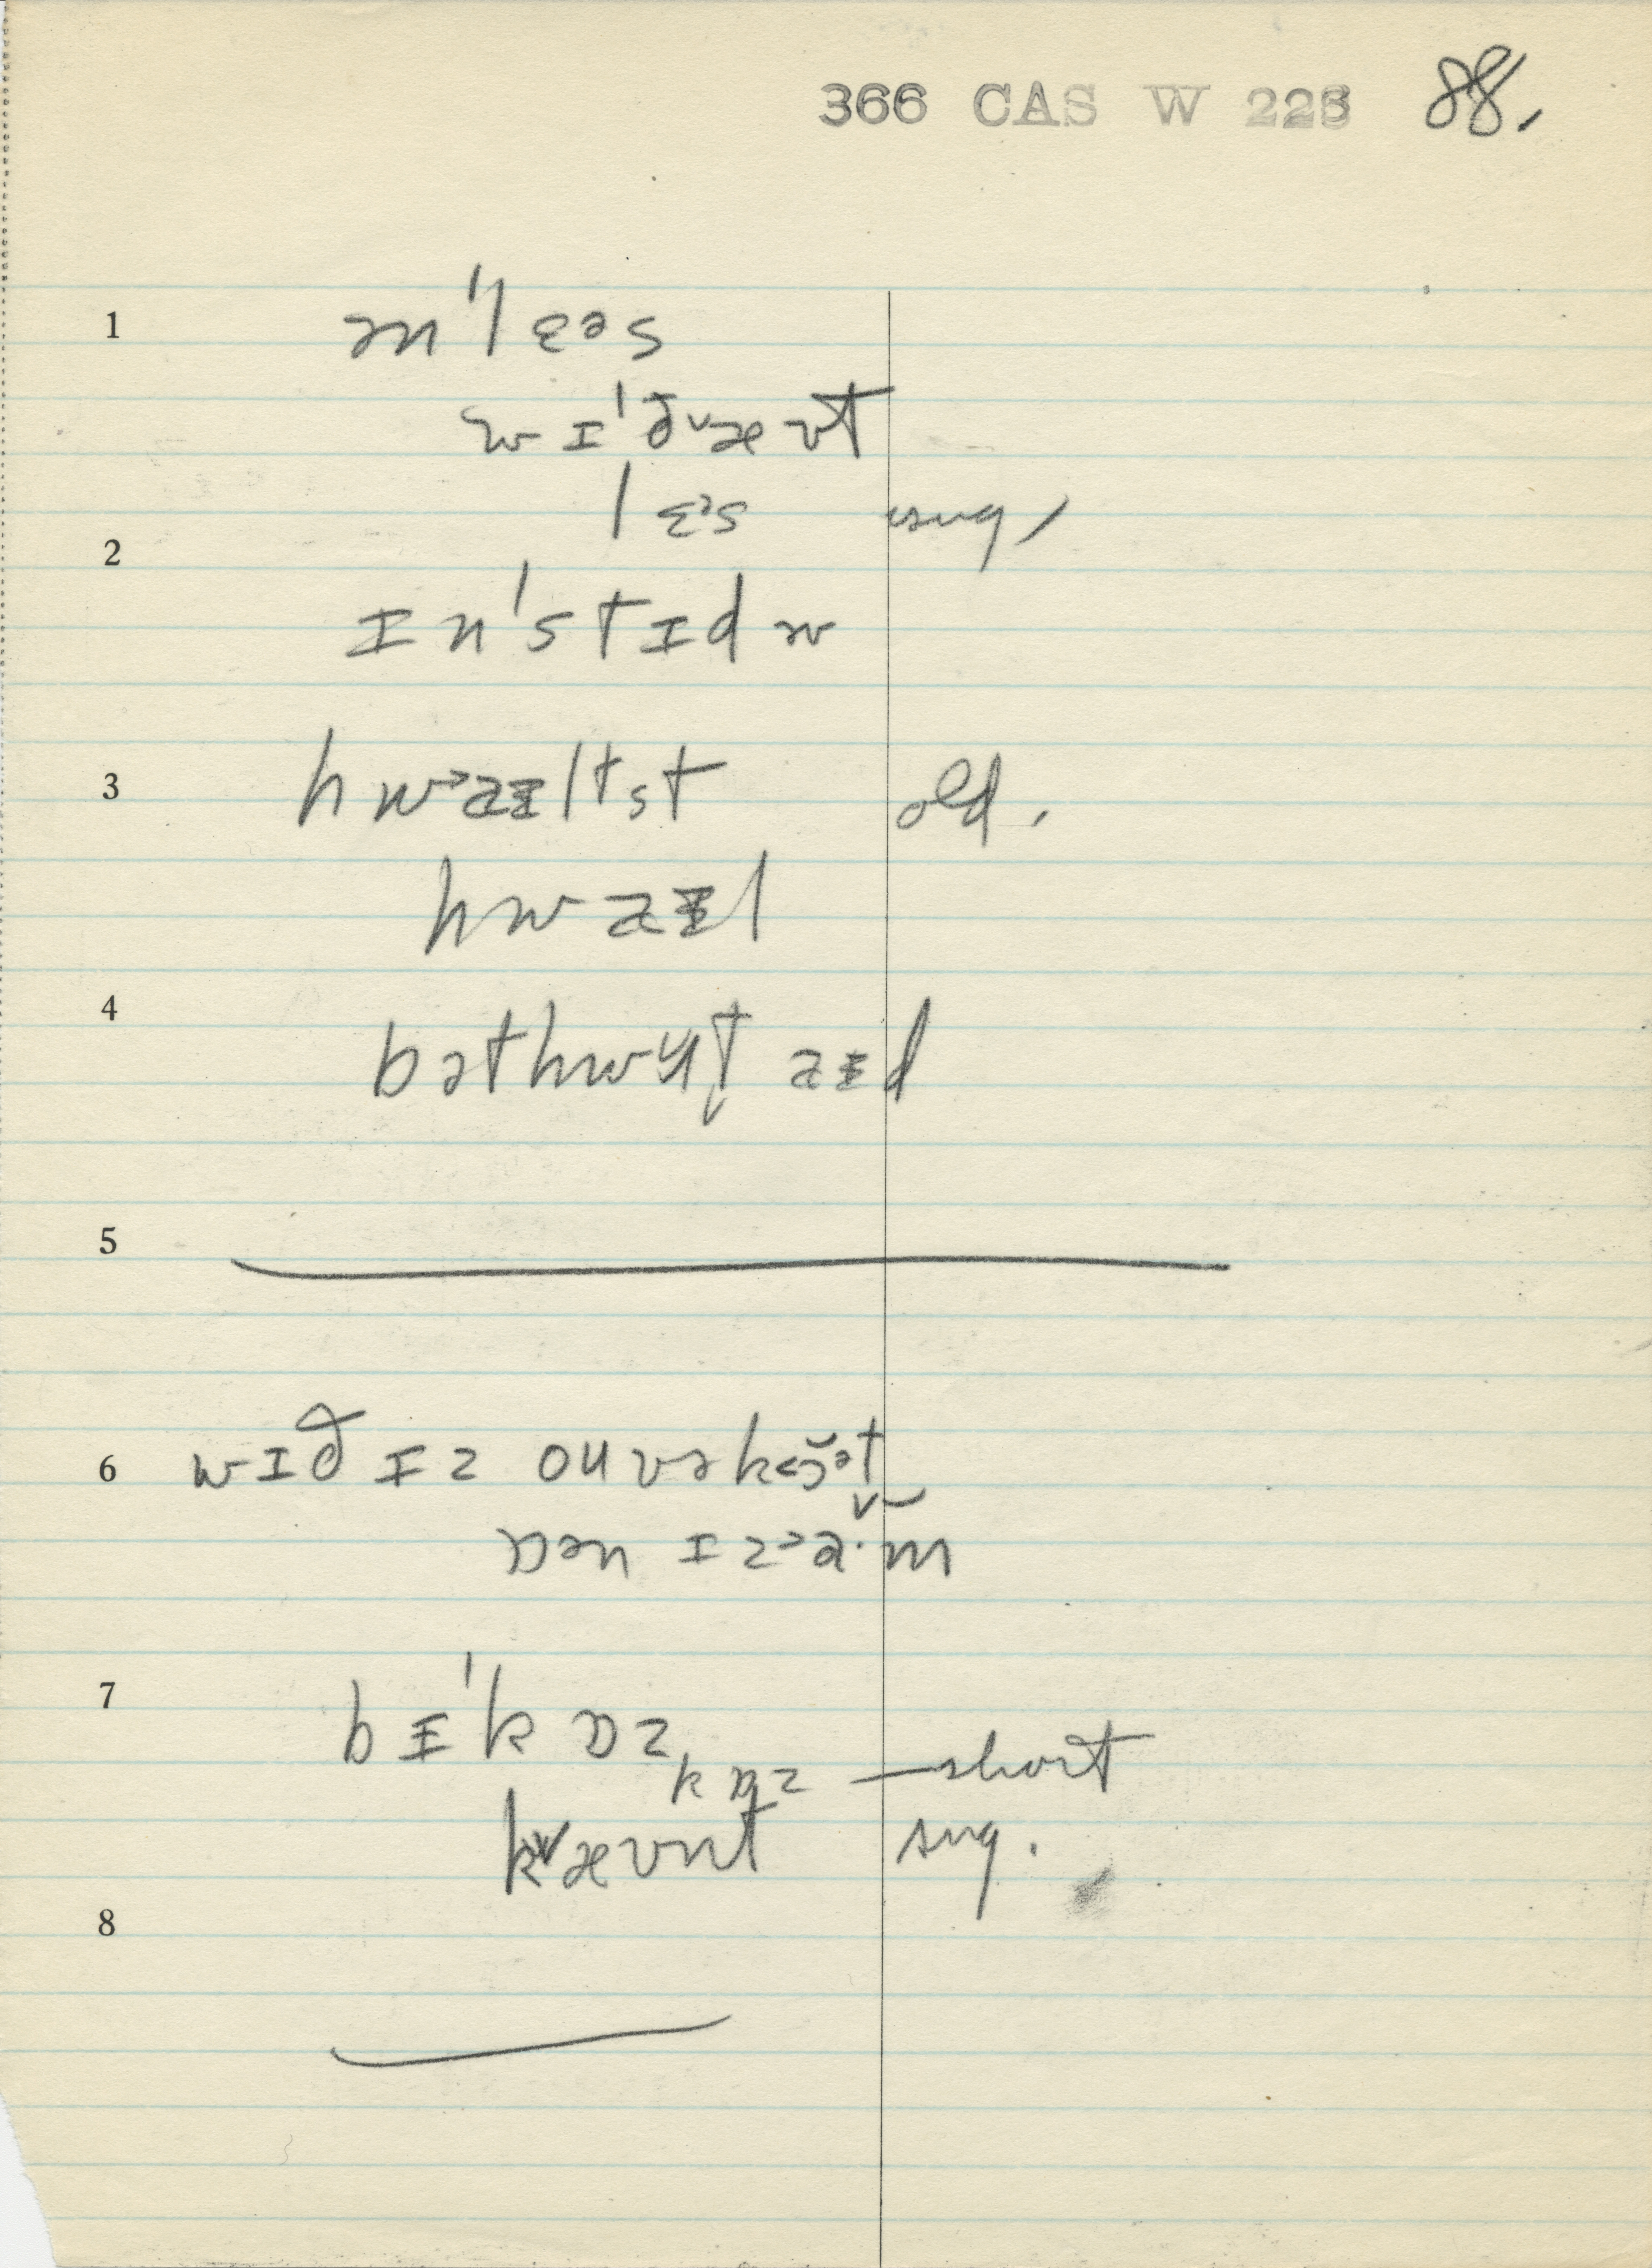 366 CAS W 223 88.
1 ən'lɛəs
wɪ'ðᵛæʊt
lɛᵊs sug,
2
ɪn'stɪdw
3 hwɐɪltst old.
hwaɪl
4 bəthwɥt aɪd
5
6 wɪð ɪz ouvəkɔət
ɒən ɪz a·m
7 bɪ'kɒz
kɒz — short
kᵛæʊnt sug.
8